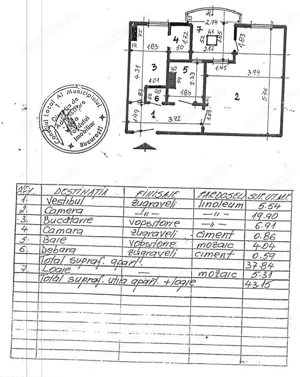 2.74
7
4
1.83
50
1.83
2.17
1.45
3.94
4.31
3
5
2.33
2
5.76
1.01
6
1.83
1
3.72
1.49
Consiliul Local Al Municipiului
Bucuresti
Imobiliar
DESTINAȚIA FINISAJE PARDOSELI SUP.UTMP.
1. Vestibul zugraveli linoleum 5.54
2. Camera -"- -"- 19.90
3. Bucatarie vopsitorie -"- 6.91
4. Camara zugraveli ciment 0.86
5. Baie vopsitorie mozaic 4.04
6. Debara zugraveli ciment 0.59
Total supraf. apart. 37.84
7. Logie — mozaic 5.31
Total supraf. utila apart. + logie 43.15